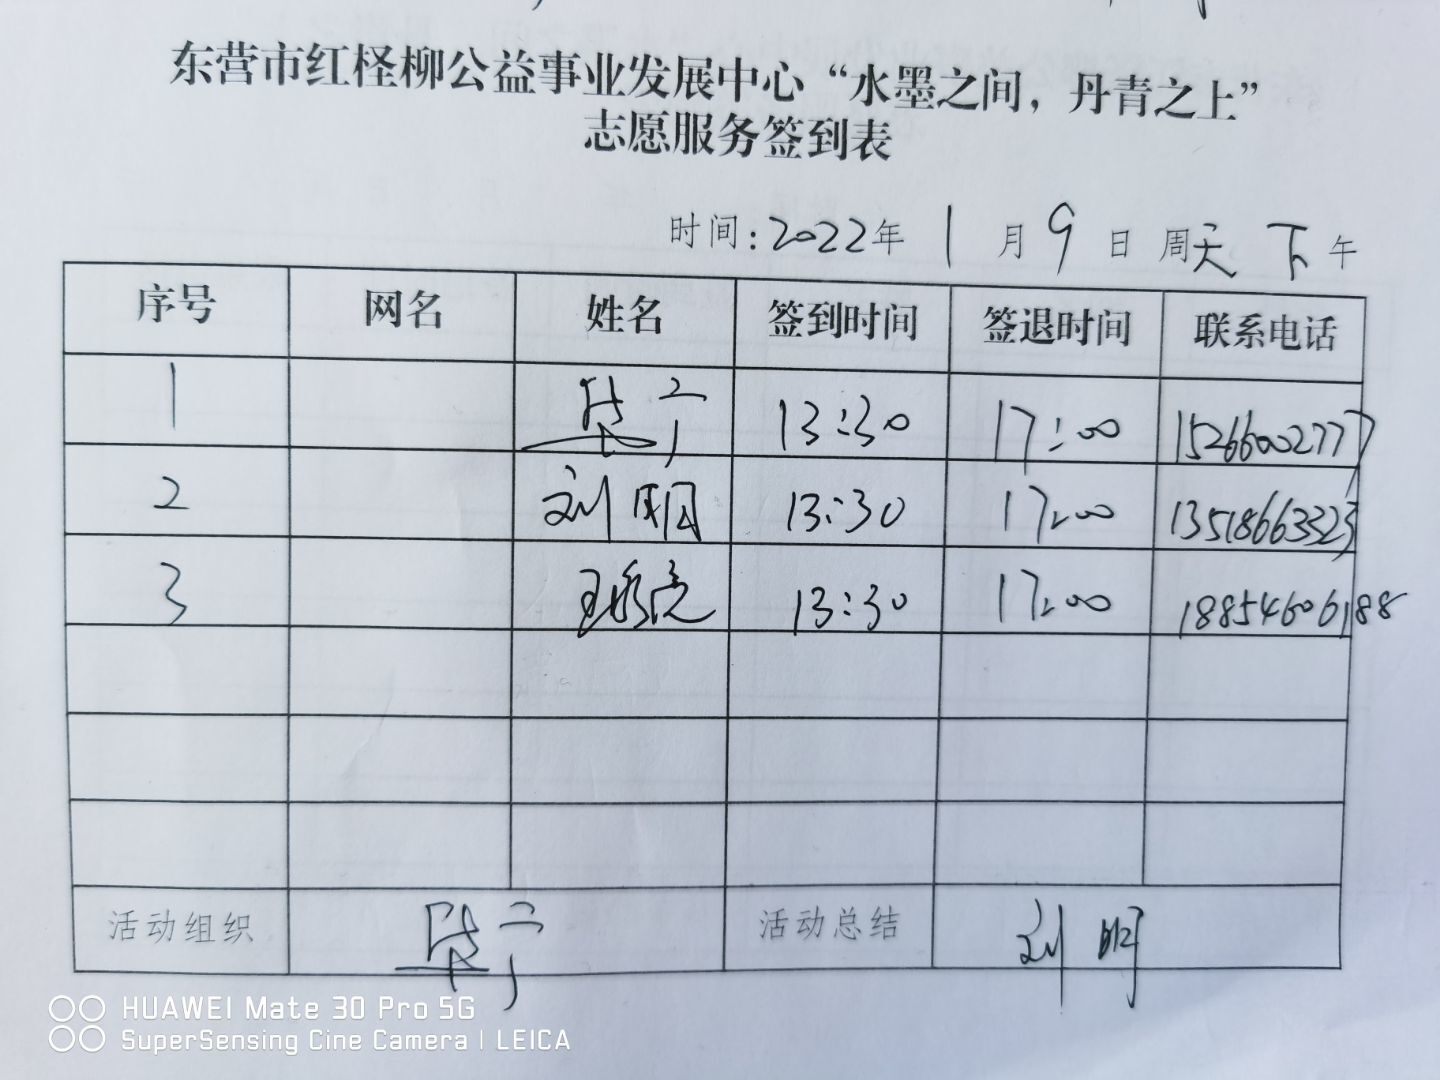 东营市红柽柳公益事业发展中心“水墨之间，丹青之上”
志愿服务签到表
时间:2022年 1 月 9 日 周天 下午
序号 网名 姓名 签到时间 签退时间 联系电话
1 13:30 17:00 15266002777
2 刘明 13:30 17:00 13518663323
3 13:30 17:00 18854606188
活动组织 活动总结 刘明
HUAWEI Mate 30 Pro 5G
SuperSensing Cine Camera | LEICA